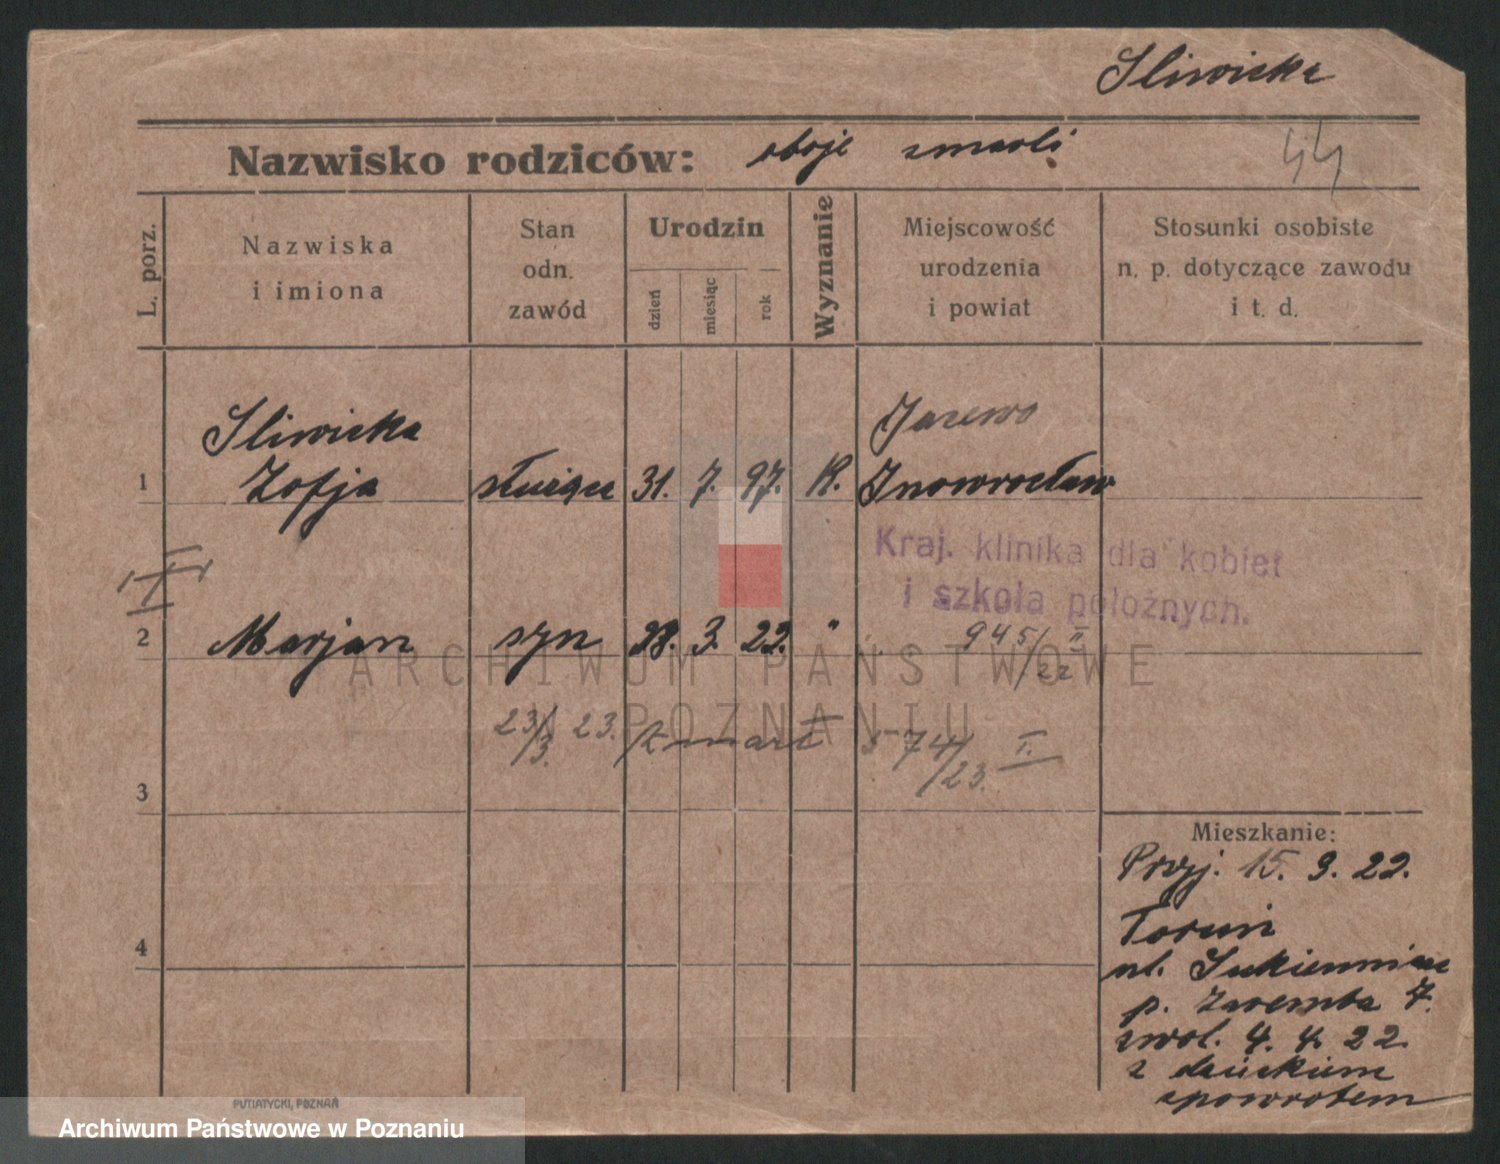 Sliwicka
Nazwisko rodziców: oboje zmarli
44
L. porz.
Nazwiska
i imiona
Stan
odn.
zawód
Urodzin
dzień
miesiąc
rok
Wyznanie
Miejscowość
urodzenia
i powiat
Stosunki osobiste
n. p. dotyczące zawodu
i t. d.
Sliwicka
1 Zofja służąca 31. 7. 97. K. Inowrocław
Kraj. klinika dla kobiet
i szkoła położnych.
2 Marjan syn 28. 3. 22. "
945/22 II
23/3. 23. zmarł 574/23. I.
3
4
Mieszkanie:
Przyj. 15. 3. 22.
Toruń
ul. Sukiennicza
p. Zaremba 7.
zwol. 4. 4. 22.
z dzieckiem
zpowrotem
PUTIATYCKI, POZNAŃ
ARCHIWUM PAŃSTWOWE
POZNANIU
Archiwum Państwowe w Poznaniu